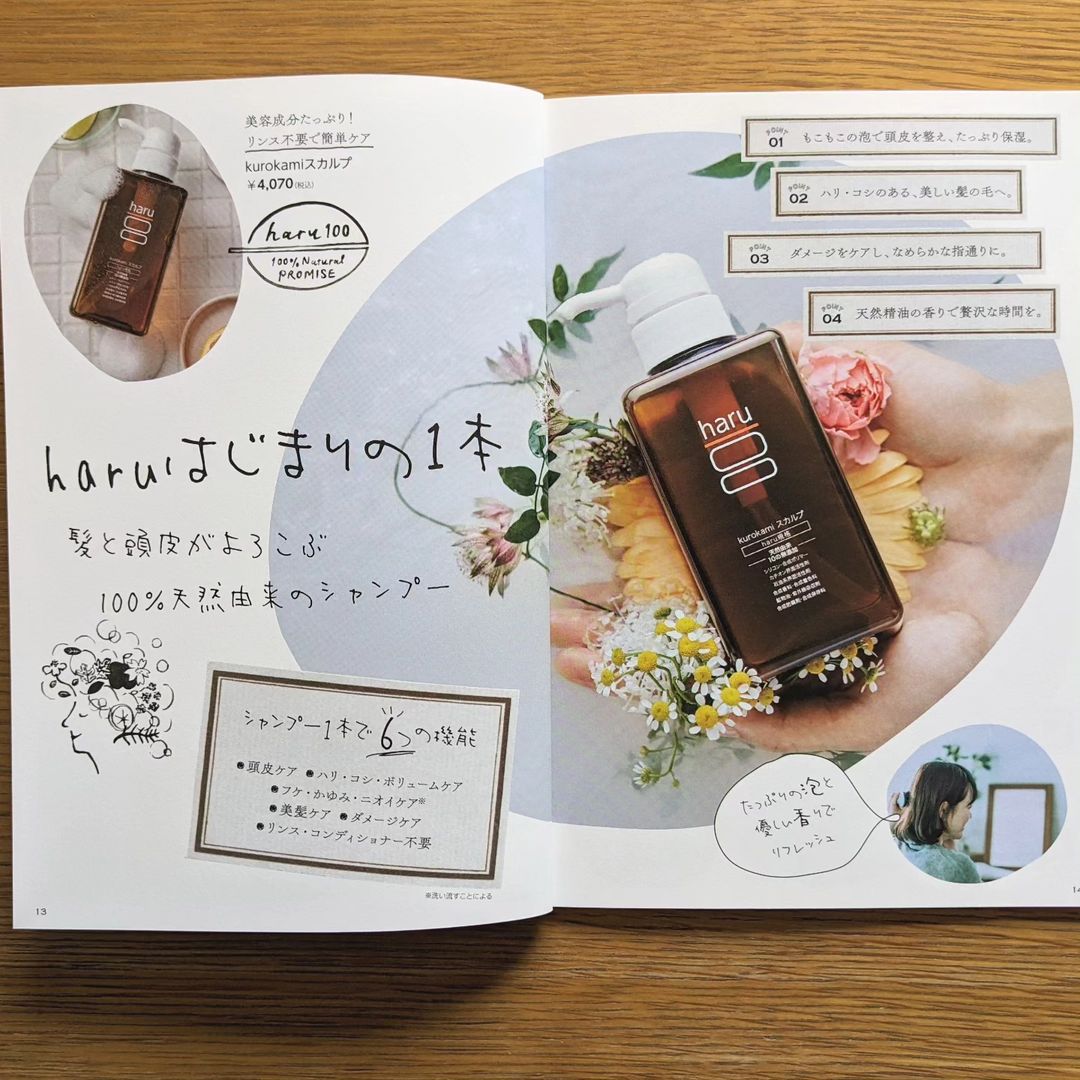 美容成分たっぷり！
リンス不要で簡単ケア
kurokamiスカルプ
￥4,070(税込)
haru100
100% Natural
PROMISE
haru
haruはじまりの1本
髪と頭皮がよろこぶ
100%天然由来のシャンプー
シャンプー1本で6つの機能
頭皮ケア ハリ・コシ・ボリュームケア
フケ・かゆみ・ニオイケア※
美髪ケア ダメージケア
リンス・コンディショナー不要
※洗い流すことによる
13
POINT 01 もこもこの泡で頭皮を整え、たっぷり保湿。
POINT 02 ハリ・コシのある、美しい髪の毛へ。
POINT 03 ダメージをケアし、なめらかな指通りに。
POINT 04 天然精油の香りで贅沢な時間を。
haru
kurokami スカルプ
haru規格
天然由来
10の無添加
シリコン・合成ポリマー
カチオン界面活性剤
石油系界面活性剤
合成香料・合成着色料
鉱物油・紫外線吸収剤
合成防腐剤・合成保存料
たっぷりの泡と
優しい香りで
リフレッシュ